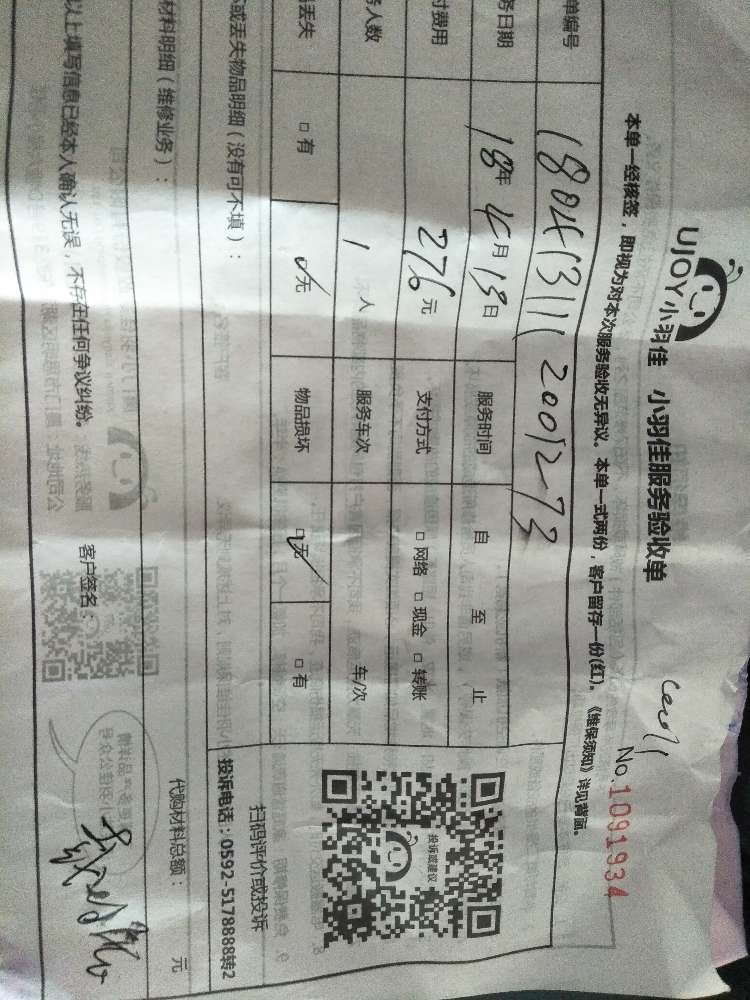 UJOY小羽佳 小羽佳服务验收单
No.1091934
本单一经核签，即视为对本次服务验收无异议。本单一式两份，客户留存一份(红)。《维保须知》详见背面。
单编号
务日期 18年4月13日 服务时间 自 至 止
付费用 276元 支付方式 □网络 □现金 □转账
务人数 1人 服务车次 车/次
丢失 □有 □无 物品损坏 □无 □有
或丢失物品明细（没有可不填）：
投诉或建议
扫码评价或投诉
投诉电话：0592-5178888转2
材料明细（维修业务）：
代购材料总额： 元
以上填写信息已经本人确认无误，不存在任何争议纠纷。 客户签名：